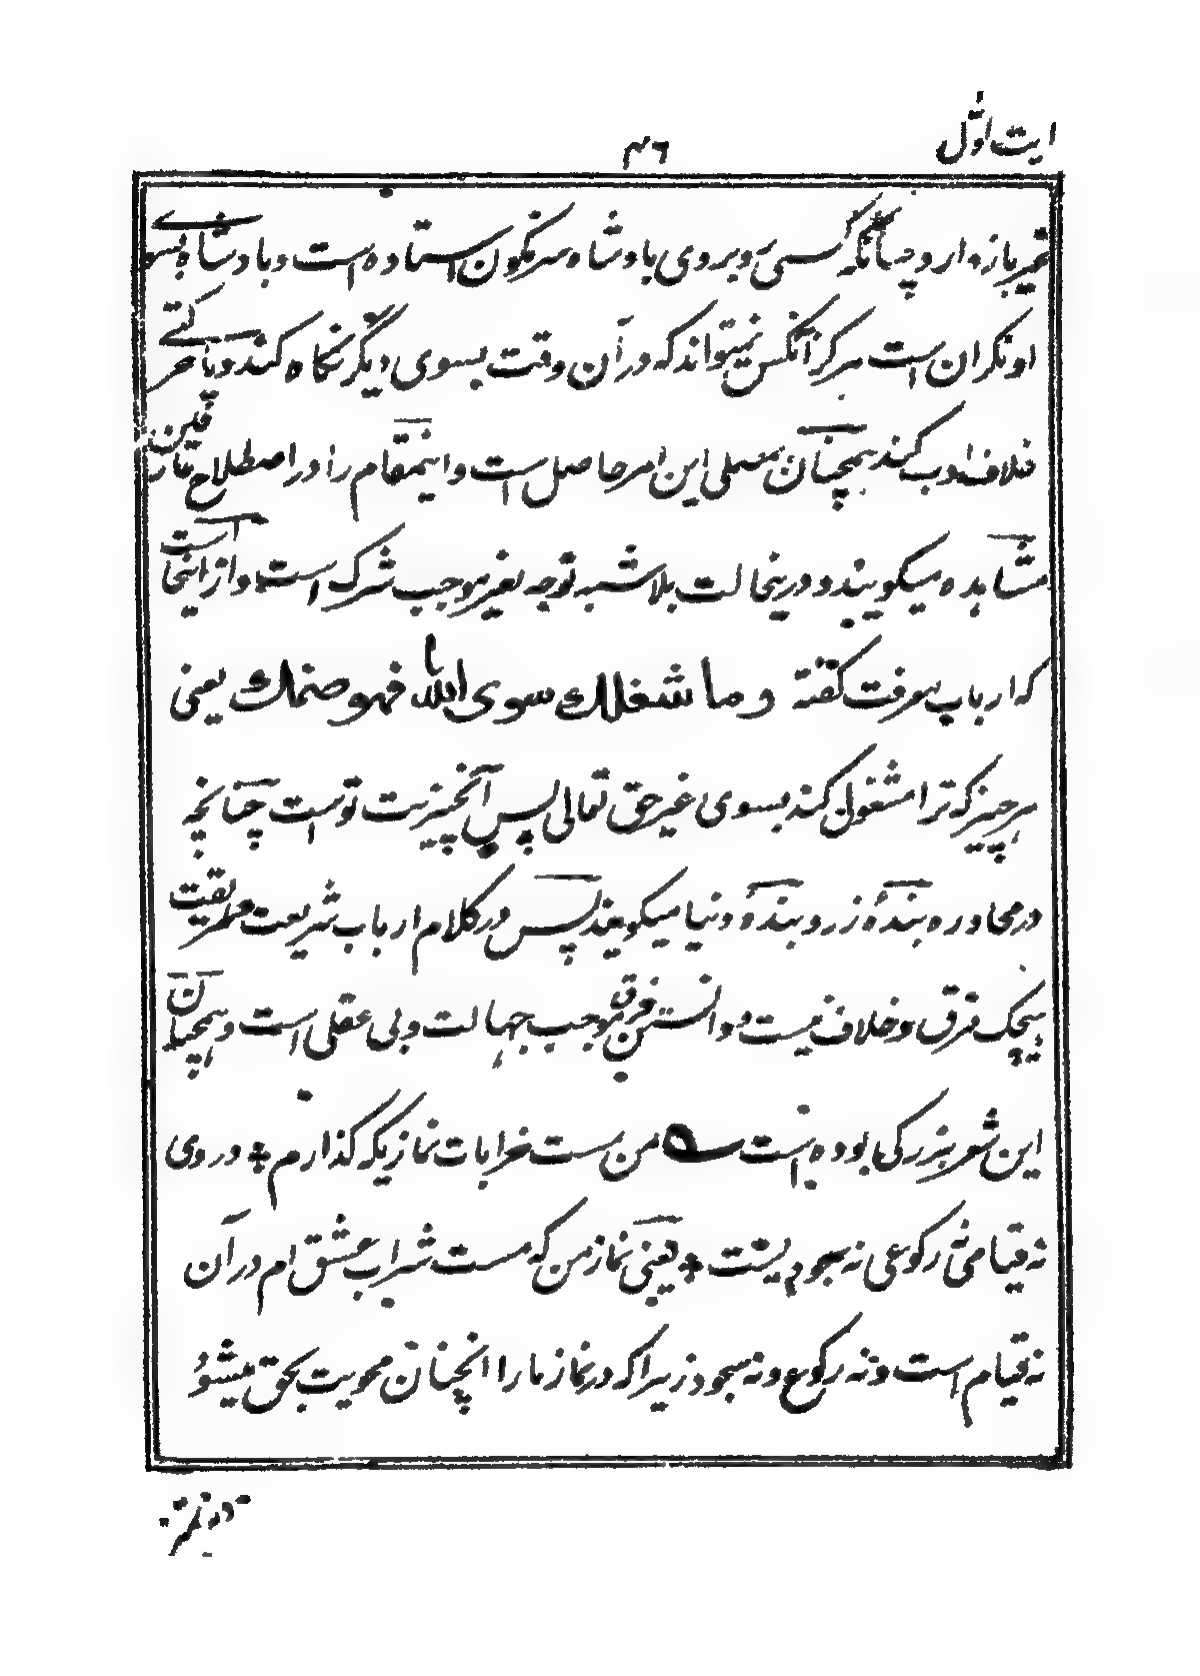 ایت اول
۴۶
غیر بازه دارد و چنانکه کسی روبروی بادشاه سرنگون استاده است و بادشاه بسوے
او نگران است هرگز آنکس نمیتواند که در آن وقت بسوی دیگر نگاه کند و یا حرکتے
خلاف ادب کند همچنان مصلی این امر حاصل است و اینمقام را در اصطلاح عارفین
مشاهده میگویند و درینحالت بلا شبه توجه بغیر موجب شرک است و از اینجا است
که ارباب معرفت گفته وما شغلك سوى الله فهو صنمك یعنی
هر چیز که ترا مشغول کند بسوی غیر حق تعالی پس آنچیز بت تو است چنانچه
در محاوره بندهٔ زر و بندهٔ دنیا میگویند پس در کلام ارباب شریعت و طریقت
هیچک فرق و خلاف نیست و دانستن فرق موجب جهالت و بی عقلی است و همچنان
این شعر بزرگی بوده است من مست خرابات نمازیکه گذارم * در وی
نه قیامی نه رکوعی نه سجودیست * یعنی نماز من که مست شراب عشق ام در آن
نه قیام است و نه رکوع و نه سجود زیرا که در نماز ما را آنچنان محویت بحق میشود